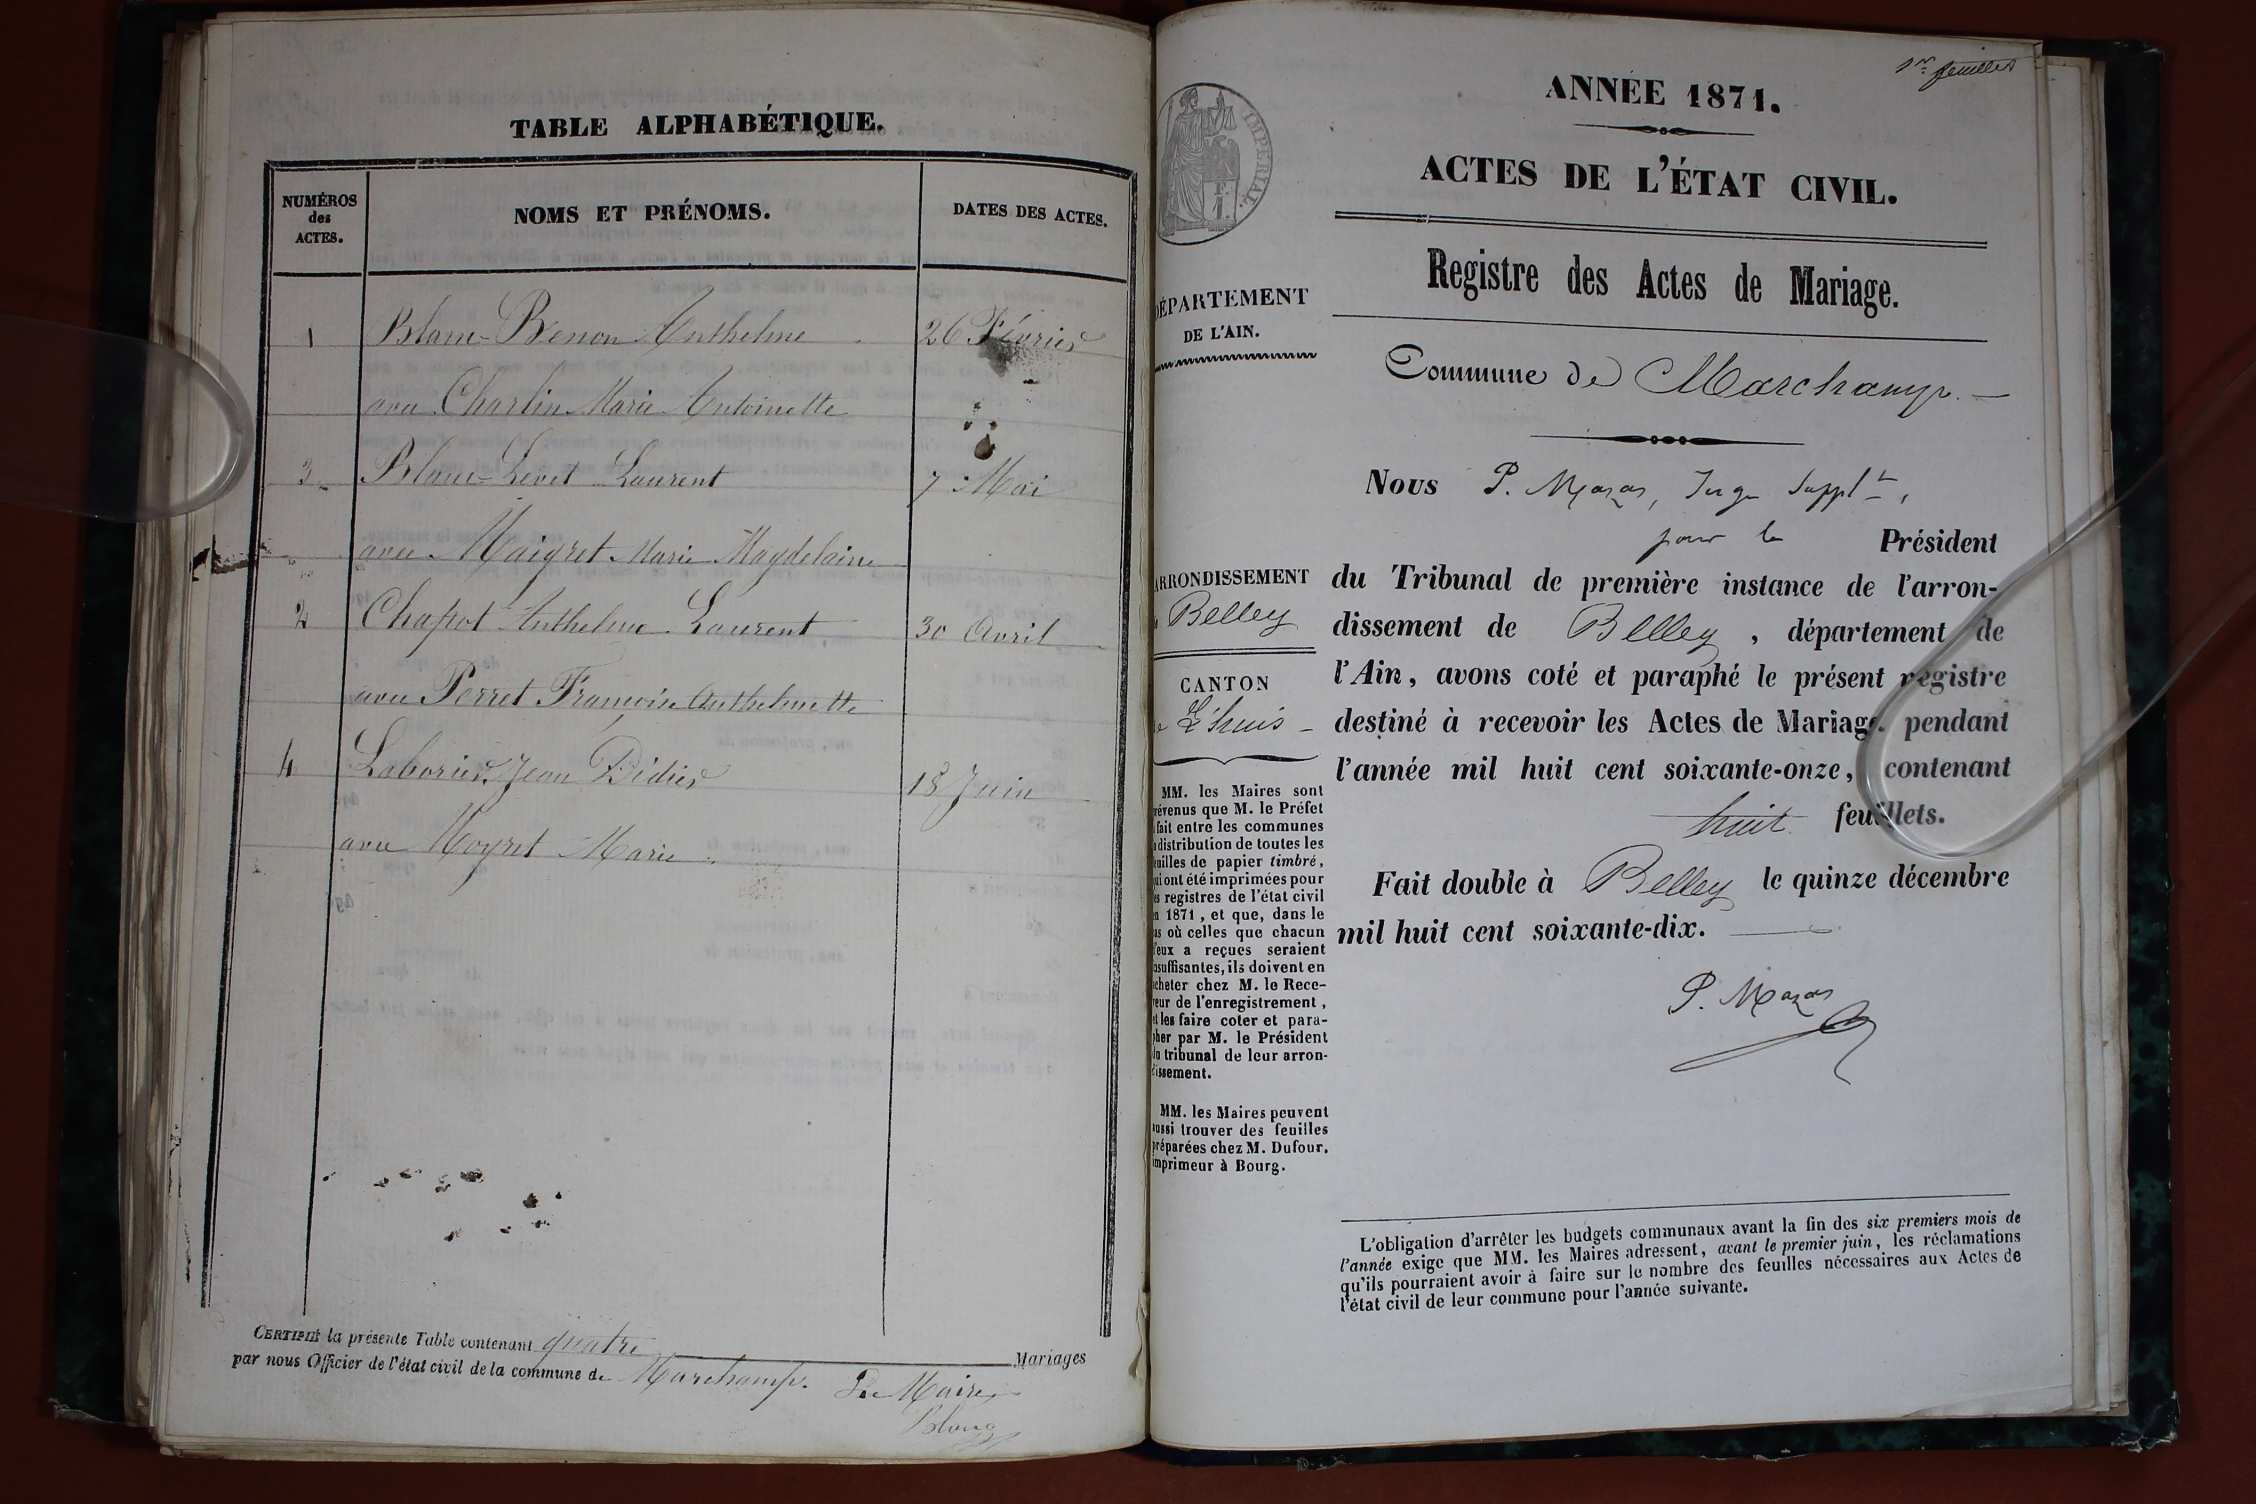 TABLE ALPHABÉTIQUE.
NUMÉROS
des
ACTES.
NOMS ET PRÉNOMS.
DATES DES ACTES.
1 Blanc-Benon Anthelme 26 Février
avec Charlin Marie Antoinette
3 Blanc-Levet Laurent 7 Mai
avec Maigret Marie Magdelaine
2 Chapot Anthelme Laurent 30 Avril
avec Perret Françoise Anthelmette
4 Laborier Jean Didier 18 Juin
avec Moyret Marie
CERTIFIÉ la présente Table contenant quatre Mariages
par nous Officier de l'état civil de la commune de Marchamp. Le Maire
Blanc
1er feuillet
IMPERIAL.
1 F.
ANNÉE 1871.
ACTES DE L'ÉTAT CIVIL.
Registre des Actes de Mariage.
DÉPARTEMENT
DE L'AIN.
Commune de Marchamp.
Nous P. Mazas, Juge Supplt,
pour le Président
ARRONDISSEMENT
Belley
CANTON
L'huis
du Tribunal de première instance de l'arron-
dissement de Belley, département de
l'Ain, avons coté et paraphé le présent registre
destiné à recevoir les Actes de Mariage pendant
l'année mil huit cent soixante-onze, contenant
huit feuillets.
Fait double à Belley le quinze décembre
mil huit cent soixante-dix.
P. Mazas
MM. les Maires sont
prévenus que M. le Préfet
fait entre les communes
distribution de toutes les
feuilles de papier timbré,
qui ont été imprimées pour
les registres de l'état civil
en 1871, et que, dans le
cas où celles que chacun
d'eux a reçues seraient
insuffisantes, ils doivent en
acheter chez M. le Rece-
veur de l'enregistrement,
et les faire coter et para-
pher par M. le Président
du tribunal de leur arron-
dissement.
MM. les Maires peuvent
aussi trouver des feuilles
préparées chez M. Dufour,
imprimeur à Bourg.
L'obligation d'arrêter les budgets communaux avant la fin des six premiers mois de
l'année exige que MM. les Maires adressent, avant le premier juin, les réclamations
qu'ils pourraient avoir à faire sur le nombre des feuilles nécessaires aux Actes de
l'état civil de leur commune pour l'année suivante.